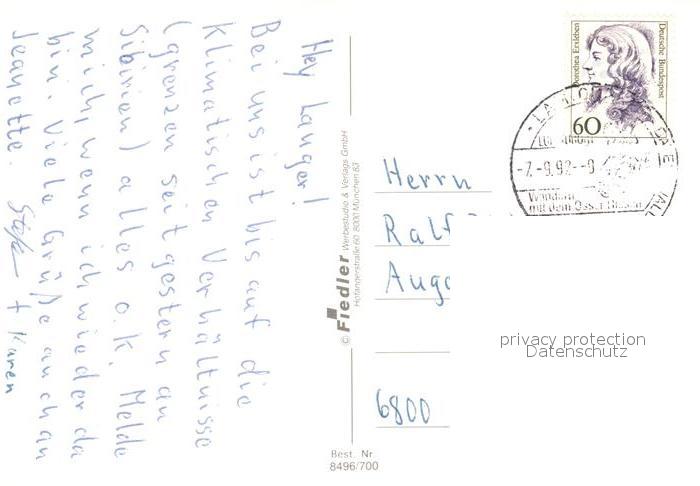 Hey Langer!
Bei uns ist bis auf die
klimatischen Verhältnisse
(grenzen seit gestern an
Sibirien) alles o.k. Melde
mich, wenn ich wieder da
bin. Viele Grüße auch an
Jeanette. Stefan + Karen
© Fiedler Werbestudio & Verlags GmbH
Hofangerstraße 60 8000 München 83
Deutsche Bundespost
Dorothea Erxleben
60
-7.-9.92--9
Wandern
mit dem Osser Riesen
Herrn
Ralf
Auge
6800
privacy protection
Datenschutz
Best. Nr.
8496/700